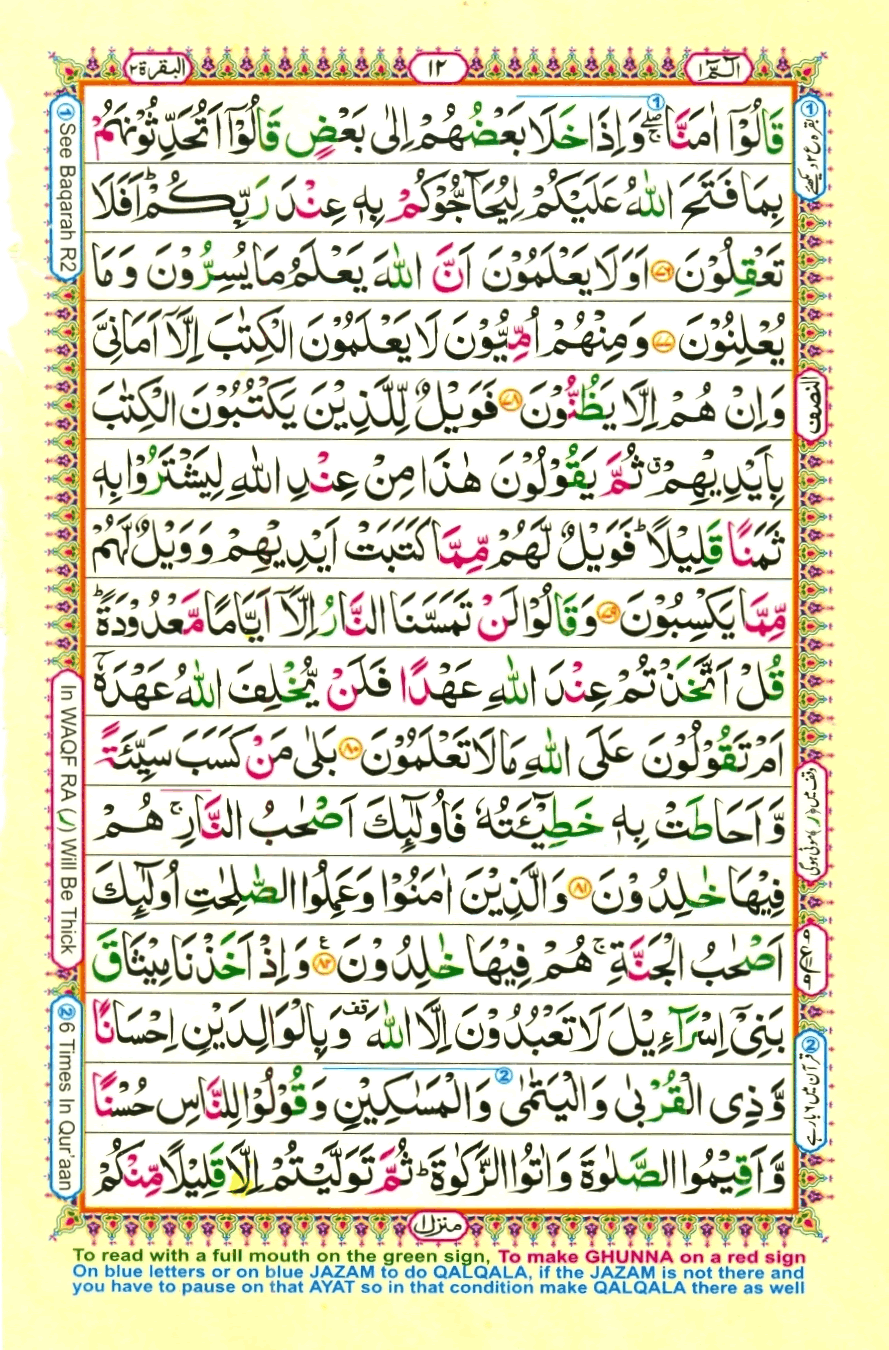 الٓمّٓ ١
١٢
البقرة ٢
قَالُوْٓا اٰمَنَّا ۖۚ وَاِذَا خَلَا بَعْضُهُمْ اِلٰى بَعْضٍ قَالُوْٓا اَتُحَدِّثُوْنَهُمْ
بِمَا فَتَحَ اللّٰهُ عَلَيْكُمْ لِيُحَآجُّوْكُمْ بِهٖ عِنْدَ رَبِّكُمْ ؕ اَفَلَا
تَعْقِلُوْنَ ﴿۷۶﴾ اَوَلَا يَعْلَمُوْنَ اَنَّ اللّٰهَ يَعْلَمُ مَا يُسِرُّوْنَ وَمَا
يُعْلِنُوْنَ ﴿۷۷﴾ وَمِنْهُمْ اُمِّيُّوْنَ لَا يَعْلَمُوْنَ الْكِتٰبَ اِلَّآ اَمَانِىَّ
وَاِنْ هُمْ اِلَّا يَظُنُّوْنَ ﴿۷۸﴾ فَوَيْلٌ لِّلَّذِيْنَ يَكْتُبُوْنَ الْكِتٰبَ
بِاَيْدِيْهِمْ ۗ ثُمَّ يَقُوْلُوْنَ هٰذَا مِنْ عِنْدِ اللّٰهِ لِيَشْتَرُوْا بِهٖ
ثَمَنًا قَلِيْلًا ؕ فَوَيْلٌ لَّهُمْ مِّمَّا كَتَبَتْ اَيْدِيْهِمْ وَوَيْلٌ لَّهُمْ
مِّمَّا يَكْسِبُوْنَ ﴿۷۹﴾ وَقَالُوْا لَنْ تَمَسَّنَا النَّارُ اِلَّآ اَيَّامًا مَّعْدُوْدَةً ؕ
قُلْ اَتَّخَذْتُمْ عِنْدَ اللّٰهِ عَهْدًا فَلَنْ يُّخْلِفَ اللّٰهُ عَهْدَهٗٓ
اَمْ تَقُوْلُوْنَ عَلَى اللّٰهِ مَا لَا تَعْلَمُوْنَ ﴿۸۰﴾ بَلٰى مَنْ كَسَبَ سَيِّئَةً
وَّاَحَاطَتْ بِهٖ خَطِيْٓئَتُهٗ فَاُولٰٓئِكَ اَصْحٰبُ النَّارِ ۚ هُمْ
فِيْهَا خٰلِدُوْنَ ﴿۸۱﴾ وَالَّذِيْنَ اٰمَنُوْا وَعَمِلُوا الصّٰلِحٰتِ اُولٰٓئِكَ
اَصْحٰبُ الْجَنَّةِ ۚ هُمْ فِيْهَا خٰلِدُوْنَ ﴿۸۲﴾ ع وَاِذْ اَخَذْنَا مِيْثَاقَ
بَنِىْٓ اِسْرَآءِيْلَ لَا تَعْبُدُوْنَ اِلَّا اللّٰهَ قف وَبِالْوَالِدَيْنِ اِحْسَانًا
وَّذِى الْقُرْبٰى وَالْيَتٰمٰى وَالْمَسٰكِيْنِ وَقُوْلُوْا لِلنَّاسِ حُسْنًا
وَّاَقِيْمُوا الصَّلٰوةَ وَاٰتُوا الزَّكٰوةَ ؕ ثُمَّ تَوَلَّيْتُمْ اِلَّا قَلِيْلًا مِّنْكُمْ
منزل ١
النصف
① See Baqarah R2
In WAQF RA (ر) Will Be Thick
② 6 Times In Qur'aan
To read with a full mouth on the green sign, To make GHUNNA on a red sign
On blue letters or on blue JAZAM to do QALQALA, if the JAZAM is not there and
you have to pause on that AYAT so in that condition make QALQALA there as well